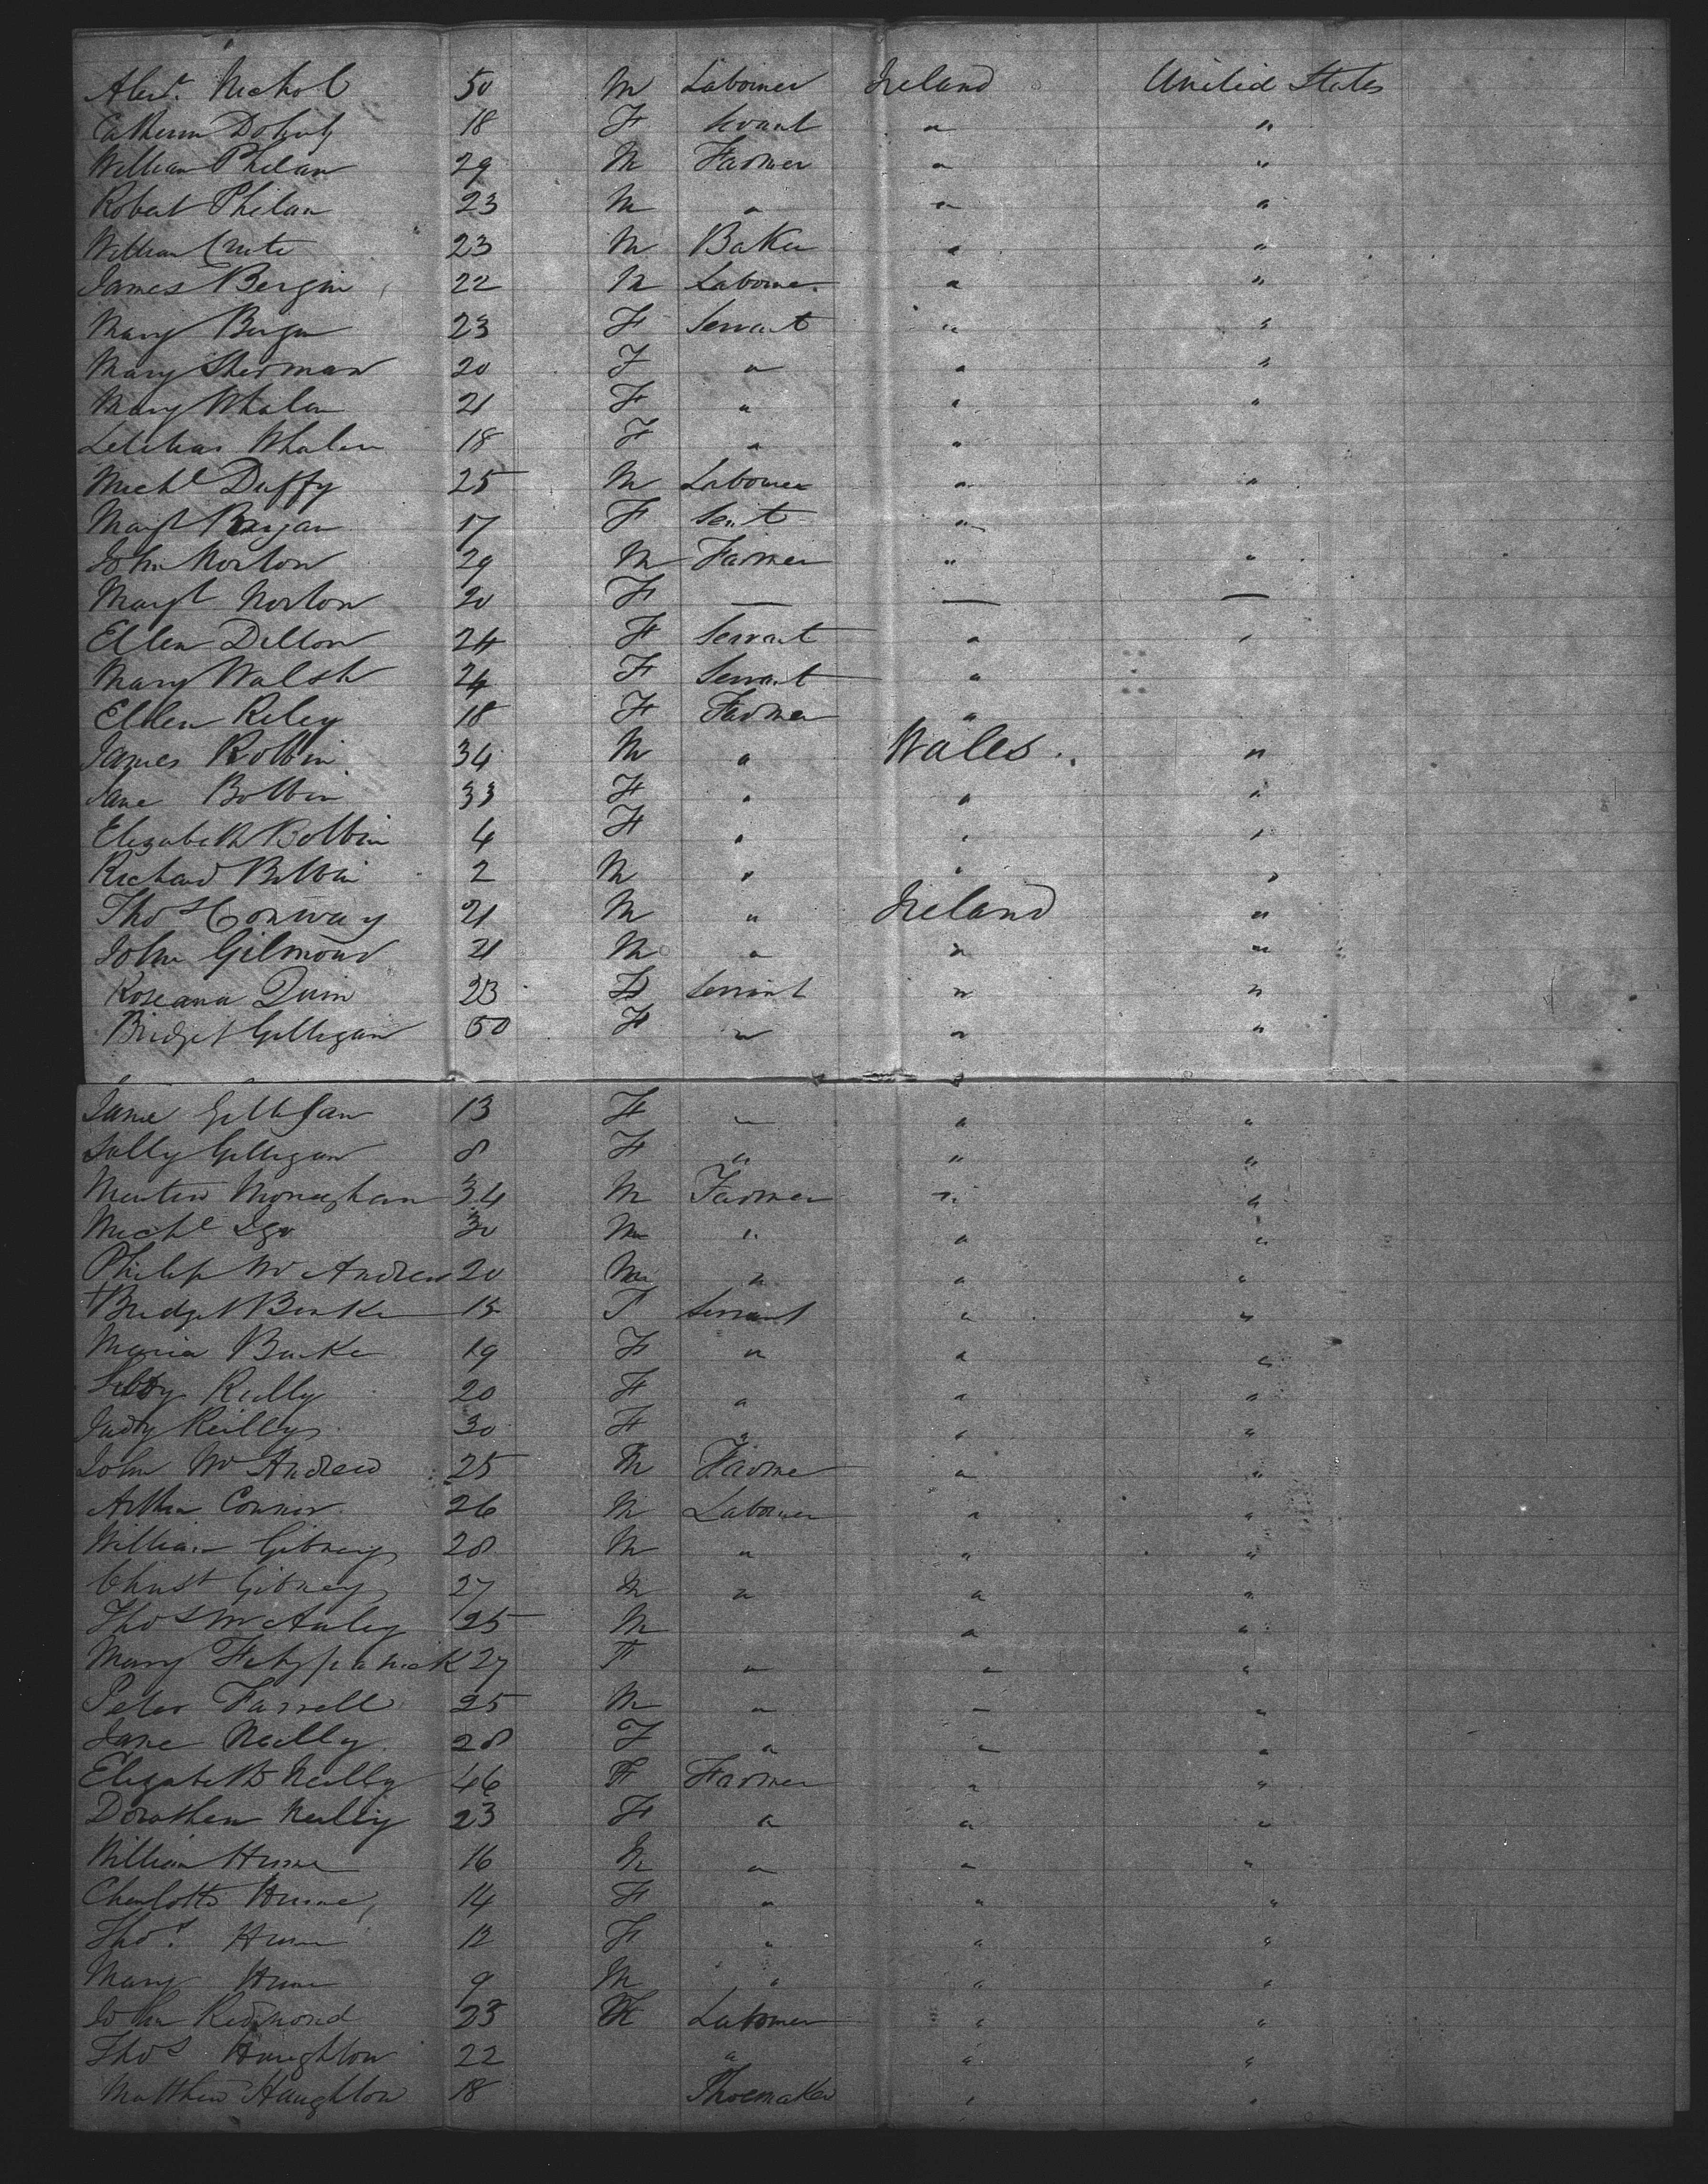 Alexr. Nichol 50 M Labourer Ireland United States
Catherin Doherty 18 F Servant " "
William Phelan 29 M Farmer " "
Robert Phelan 23 M " " "
William 23 M Baker " "
James Bergin 22 M Labourer " "
Mary Bergin 23 F Servant " "
Mary Sherman 20 F " " "
Mary Whalen 21 F " " "
Whalen 18 F " "
Michl Duffy 25 M Labourer " "
Margt 17 F "
John Norton 29 M Farmer " "
Margt Norton 20 F — — —
Ellen Dillon 24 F Servant " "
Mary Walsh 24 F Servant "
Ellen Riley 18 F Farmer "
James Bobbin 34 M " Wales "
Jane Bobbin 33 F " " "
Elizabeth Bobbin 4 F " " "
Richard Bobbin 2 M " " "
Thos Conway 21 M " Ireland "
John Gilmour 21 M " " "
Roseana Quin 23 F Servant " "
Bridget Gilligan 50 F " " "
Jane Gilligan 13 F " " "
Sally Gilligan 8 F " " "
Martin Monaghan 34 M Farmer " "
Michl Igo 30 M " " "
Philip McAndrew 20 M " " "
Bridget Burke F Servant " "
Maria Burke 19 F " " "
Reilly 20 F " " "
Judy Reilly 30 F " " "
John McAndrew 25 M Farmer " "
Arthur Connor 26 M Labourer " "
William Gibney 28 M " " "
Christ Gibney 27 M " " "
Thos McAnley 25 M " "
Mary Fitzpatrick 27 F " " "
Peter Farrell 25 M " " "
Jane Neilly 28 F " " "
Elizabeth Neilly 46 F Farmer " "
Dorothea Neilly 23 F " " "
William Hume 16 M " " "
Charlotte Hume 14 F " " "
Thos. Hume 12 F " " "
Mary Hume 9 M " " "
John Redmond 23 Labourer " "
Thos Haughton 22 " " "
Matthew Haughton 18 Shoemaker " "